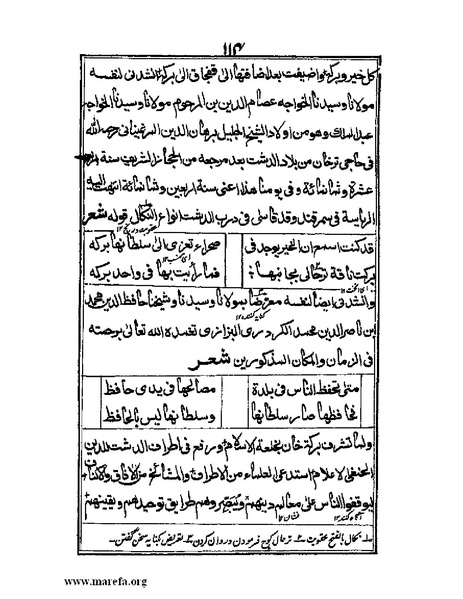 ١١٤
كل خير وبركة واضيفت بعد اضافتها الى قفجاق الى بركة انشدنى لنفسه
مولانا وسيدنا الخواجه عصام الدين بن المرحوم مولانا وسيدنا الخواجه
عبد الملك وهو من اولاد الشيخ الجليل برهان الدين المرغينانى رحمه الله
فى حاجى ترخان من بلاد الدشت بعد مرجعه من الحجاز الشريف سنة
عشرة وثمانمائة وفى يومنا هذا اعنى سنة اربعين وثمانمائة انتهت اليه
الرياسة فى سمرقند وقد قاسى فى درب الدشت انواع النكال قوله شعر
قد كنت اسمع ان الخير يوجد فى صحراء تعزى الى سلطانها بركه
بركت ناقة ترحالى بجانبها فما رأيت بها فى واحد بركه
وانشدنى ايضا لنفسه معرضا بمولانا وسيدنا وشيخنا حافظ الدين محمد
ابن ناصر الدين محمد الكردرى البزازى تغمده الله تعالى برحمته
فى الزمان والمكان المذكورين شعر
متى تحفظ الناس فى بلدة مصالحها فى يدى حافظ
فحافظها صار سلطانها وسلطانها ليس بالحافظ
ولما تشرف بركة خان بخلعة الاسلام ورفع فى اطراف الدشت للدين
الحنفى الاعلام استدعى العلماء من الاطراف والمشائخ من الافاق والاكناف
ليوقفوا الناس على معالم دينهم ويبصروهم طرايق توحيدهم ويقينهم
نكال بالفتح عقوبت ترحال كوچ فرمودن وروان كردن تعريض كنايه سخن گفتن
www.marefa.org